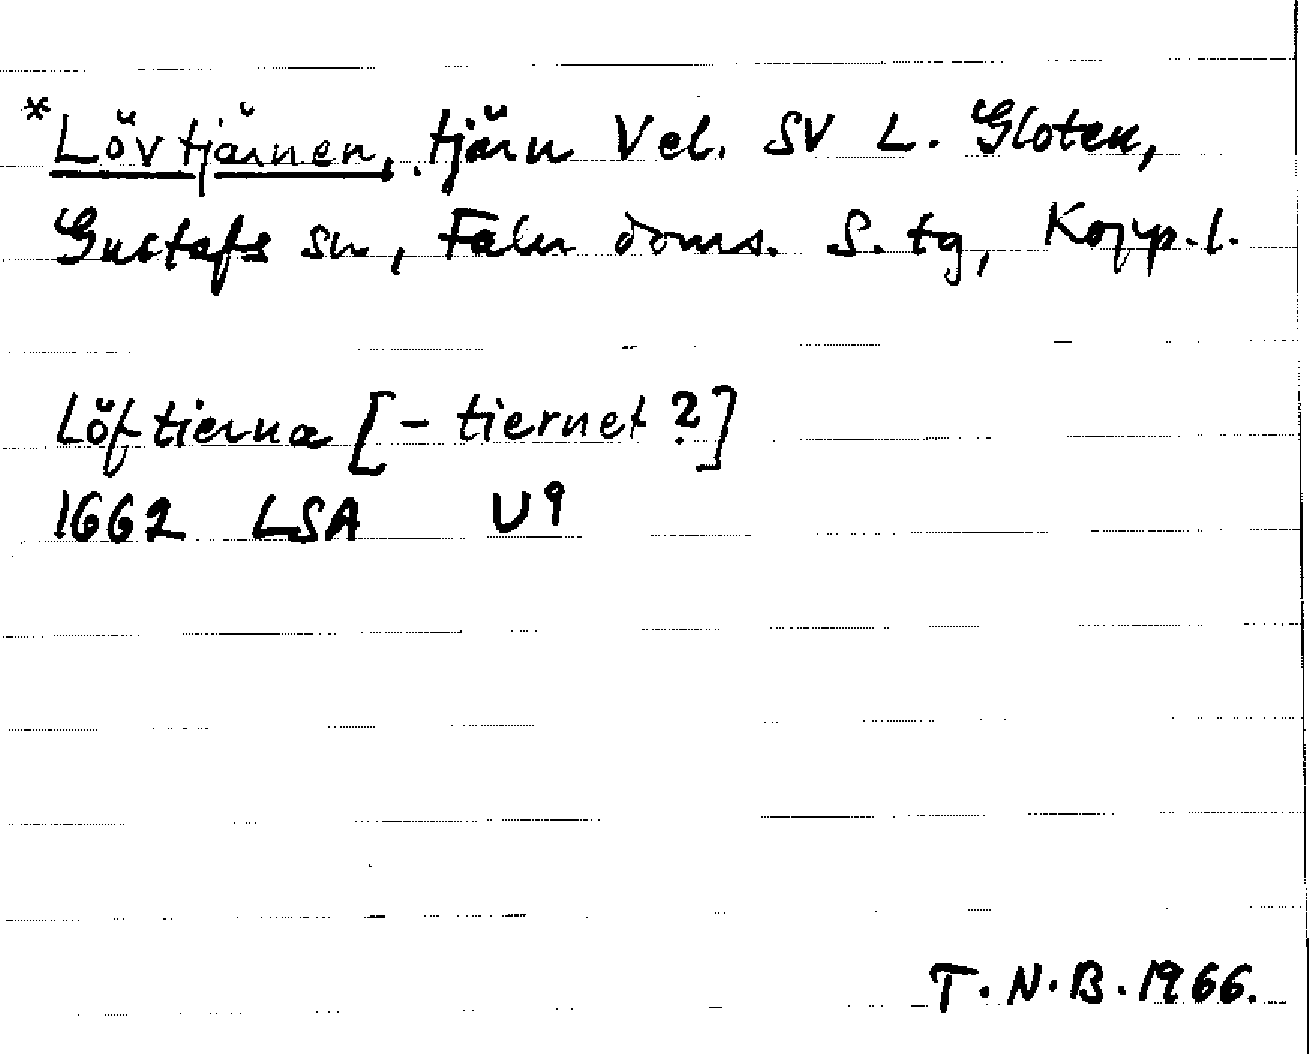 *Lövtjärnen, tjärn Vel. SV L. Gloten,
Gustafs sn, Falu doms. S. tg, Kopp. l.
Löftierna [- tiernet ?]
1662 LSA U9
T. N. B. 1966.